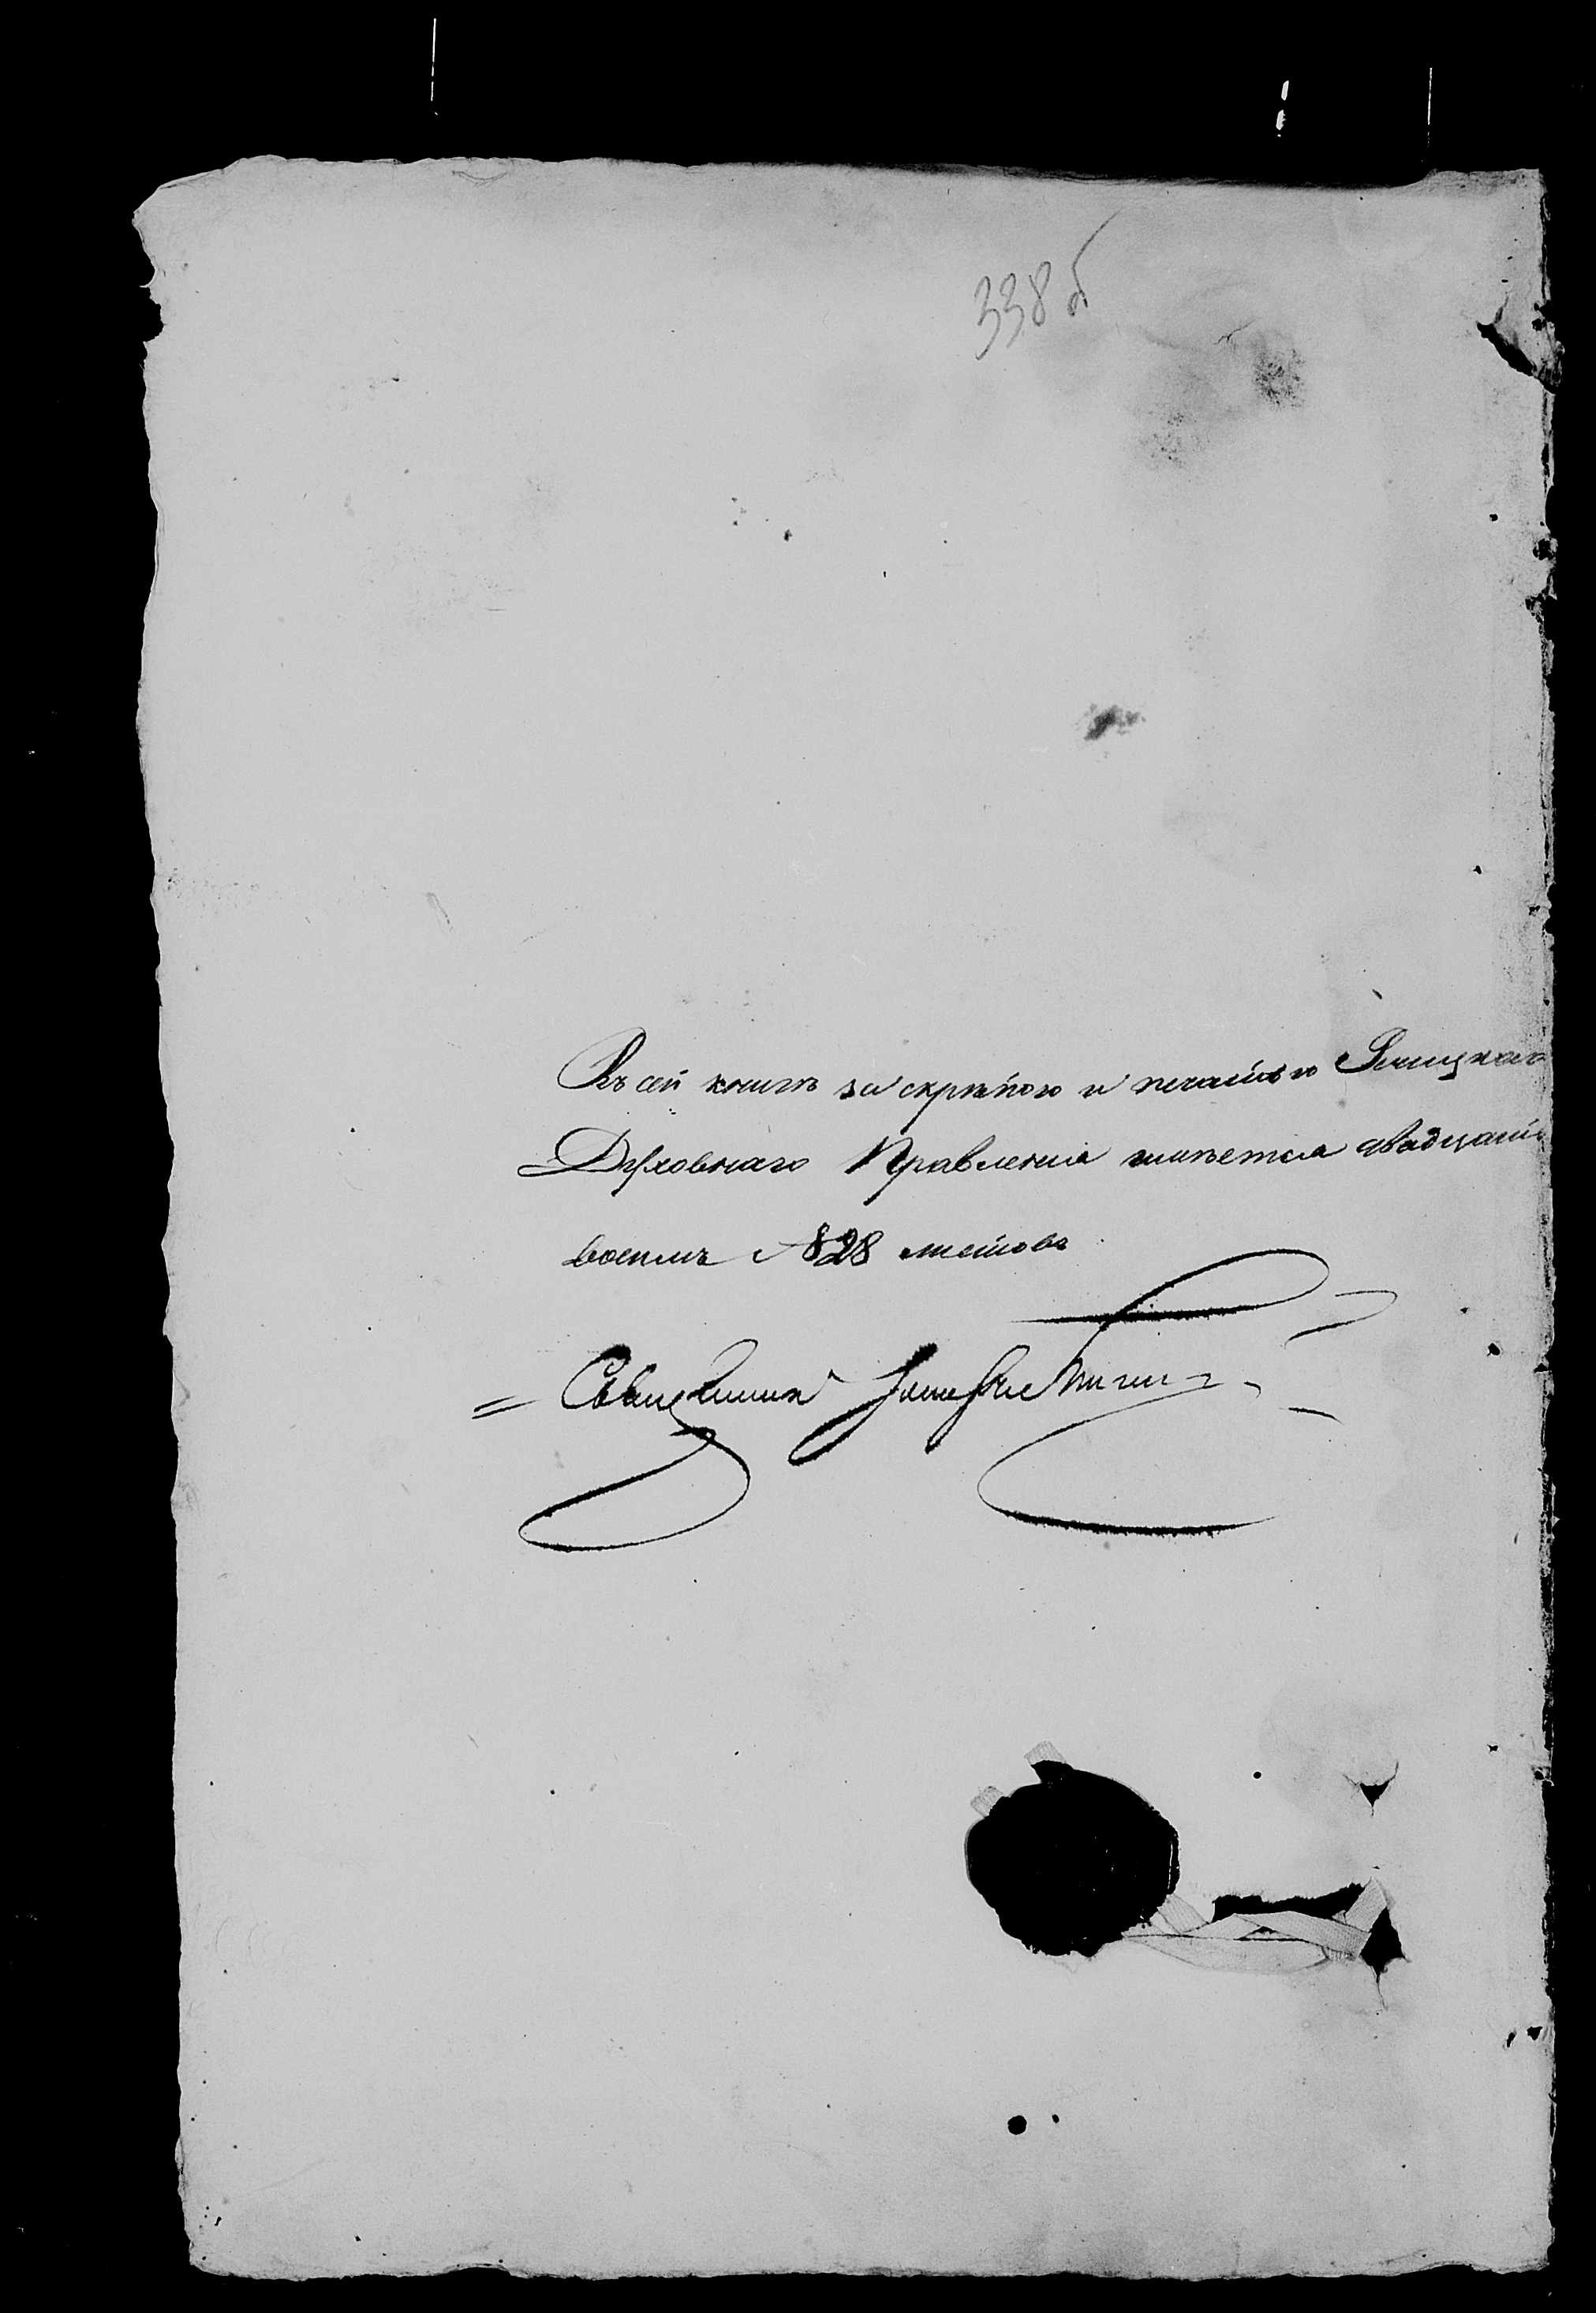 338 б
Въ сей книгѣ за скрѣпою и печатью
Духовнаго Правленія числится двадцать
восемь № 28 листовъ
Священникъ